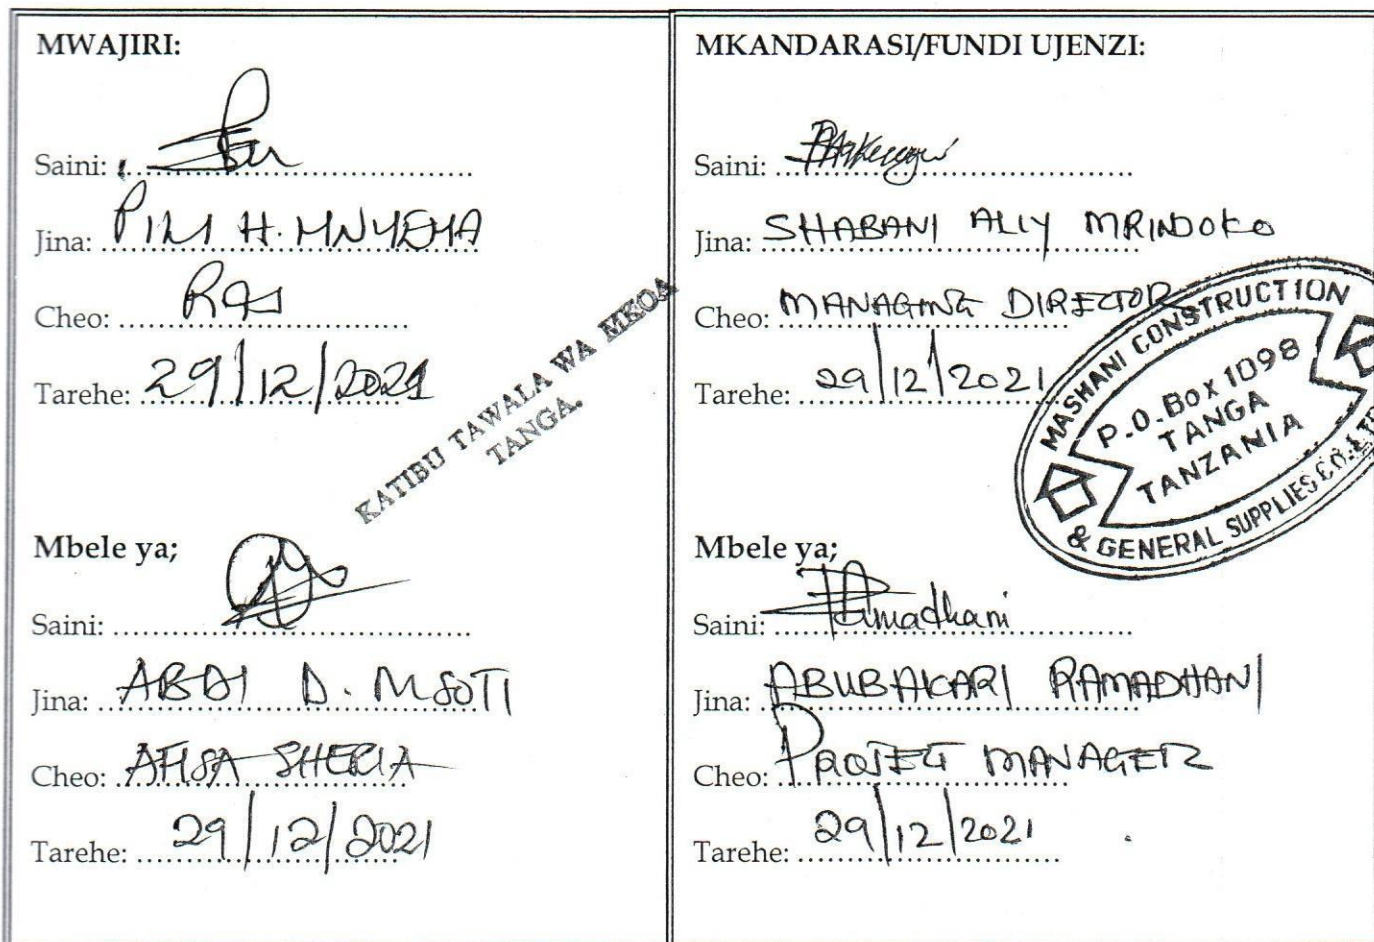 MWAJIRI:
Saini:
Jina: PILI H. MNYEMA
Cheo: RAS
Tarehe: 29/12/2021
KATIBU TAWALA WA MKOA
TANGA.
Mbele ya;
Saini:
Jina: ABDI D. MSOTI
Cheo: AFISA SHERIA
Tarehe: 29/12/2021
MKANDARASI/FUNDI UJENZI:
Saini:
Jina: SHABANI ALIY MRINDOKO
Cheo: MANAGING DIRECTOR
Tarehe: 29/12/2021
MASHANI CONSTRUCTION
P.O.Box 1098
TANGA
TANZANIA
& GENERAL SUPPLIES CO. LTD
Mbele ya;
Saini: Ramadhani
Jina: ABUBAKARI RAMADHANI
Cheo: PROJECT MANAGER
Tarehe: 29/12/2021